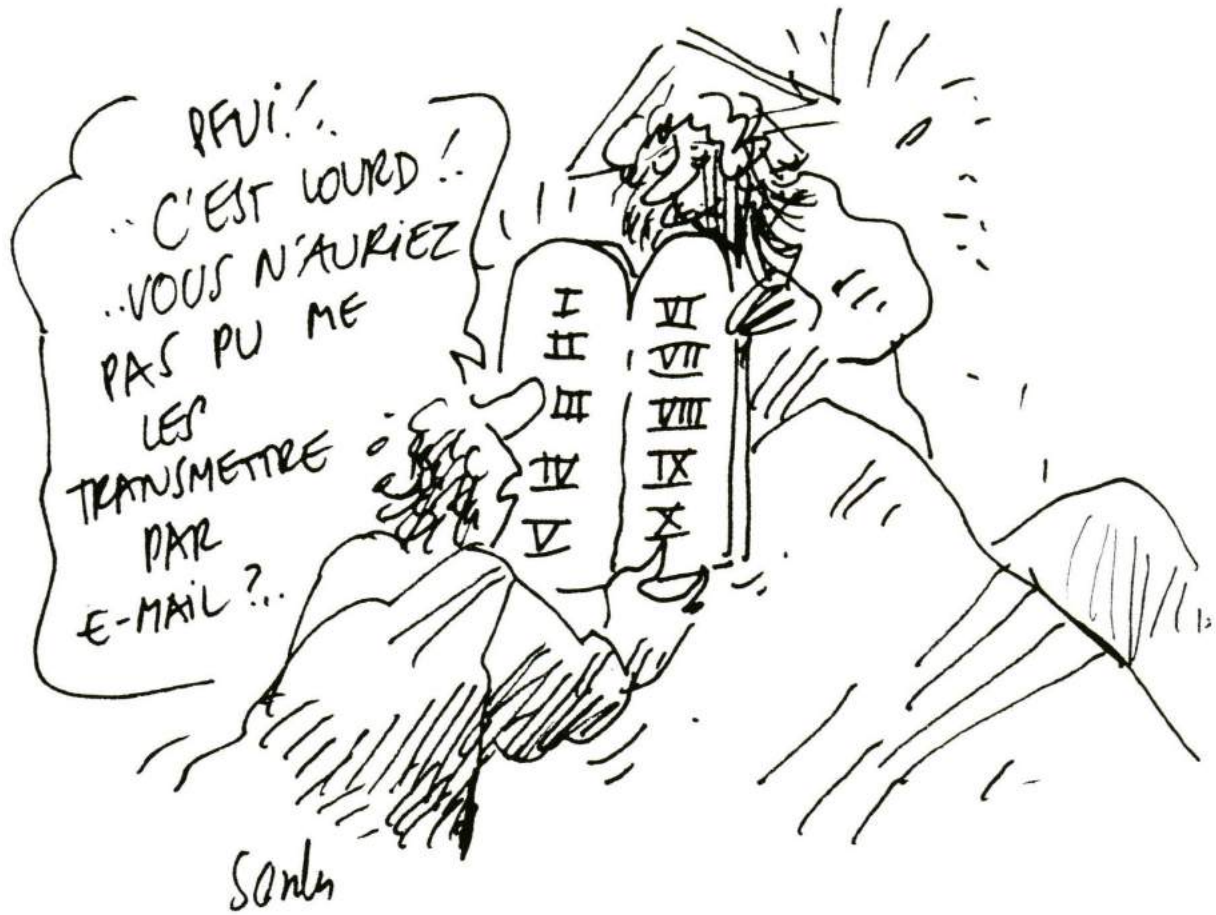 PFUI!..
..C'EST LOURD!..
..VOUS N'AURIEZ
PAS PU ME
LES
TRANSMETTRE
PAR
E-MAIL?..
I
II
III
IV
V
VI
VII
VIII
IX
X